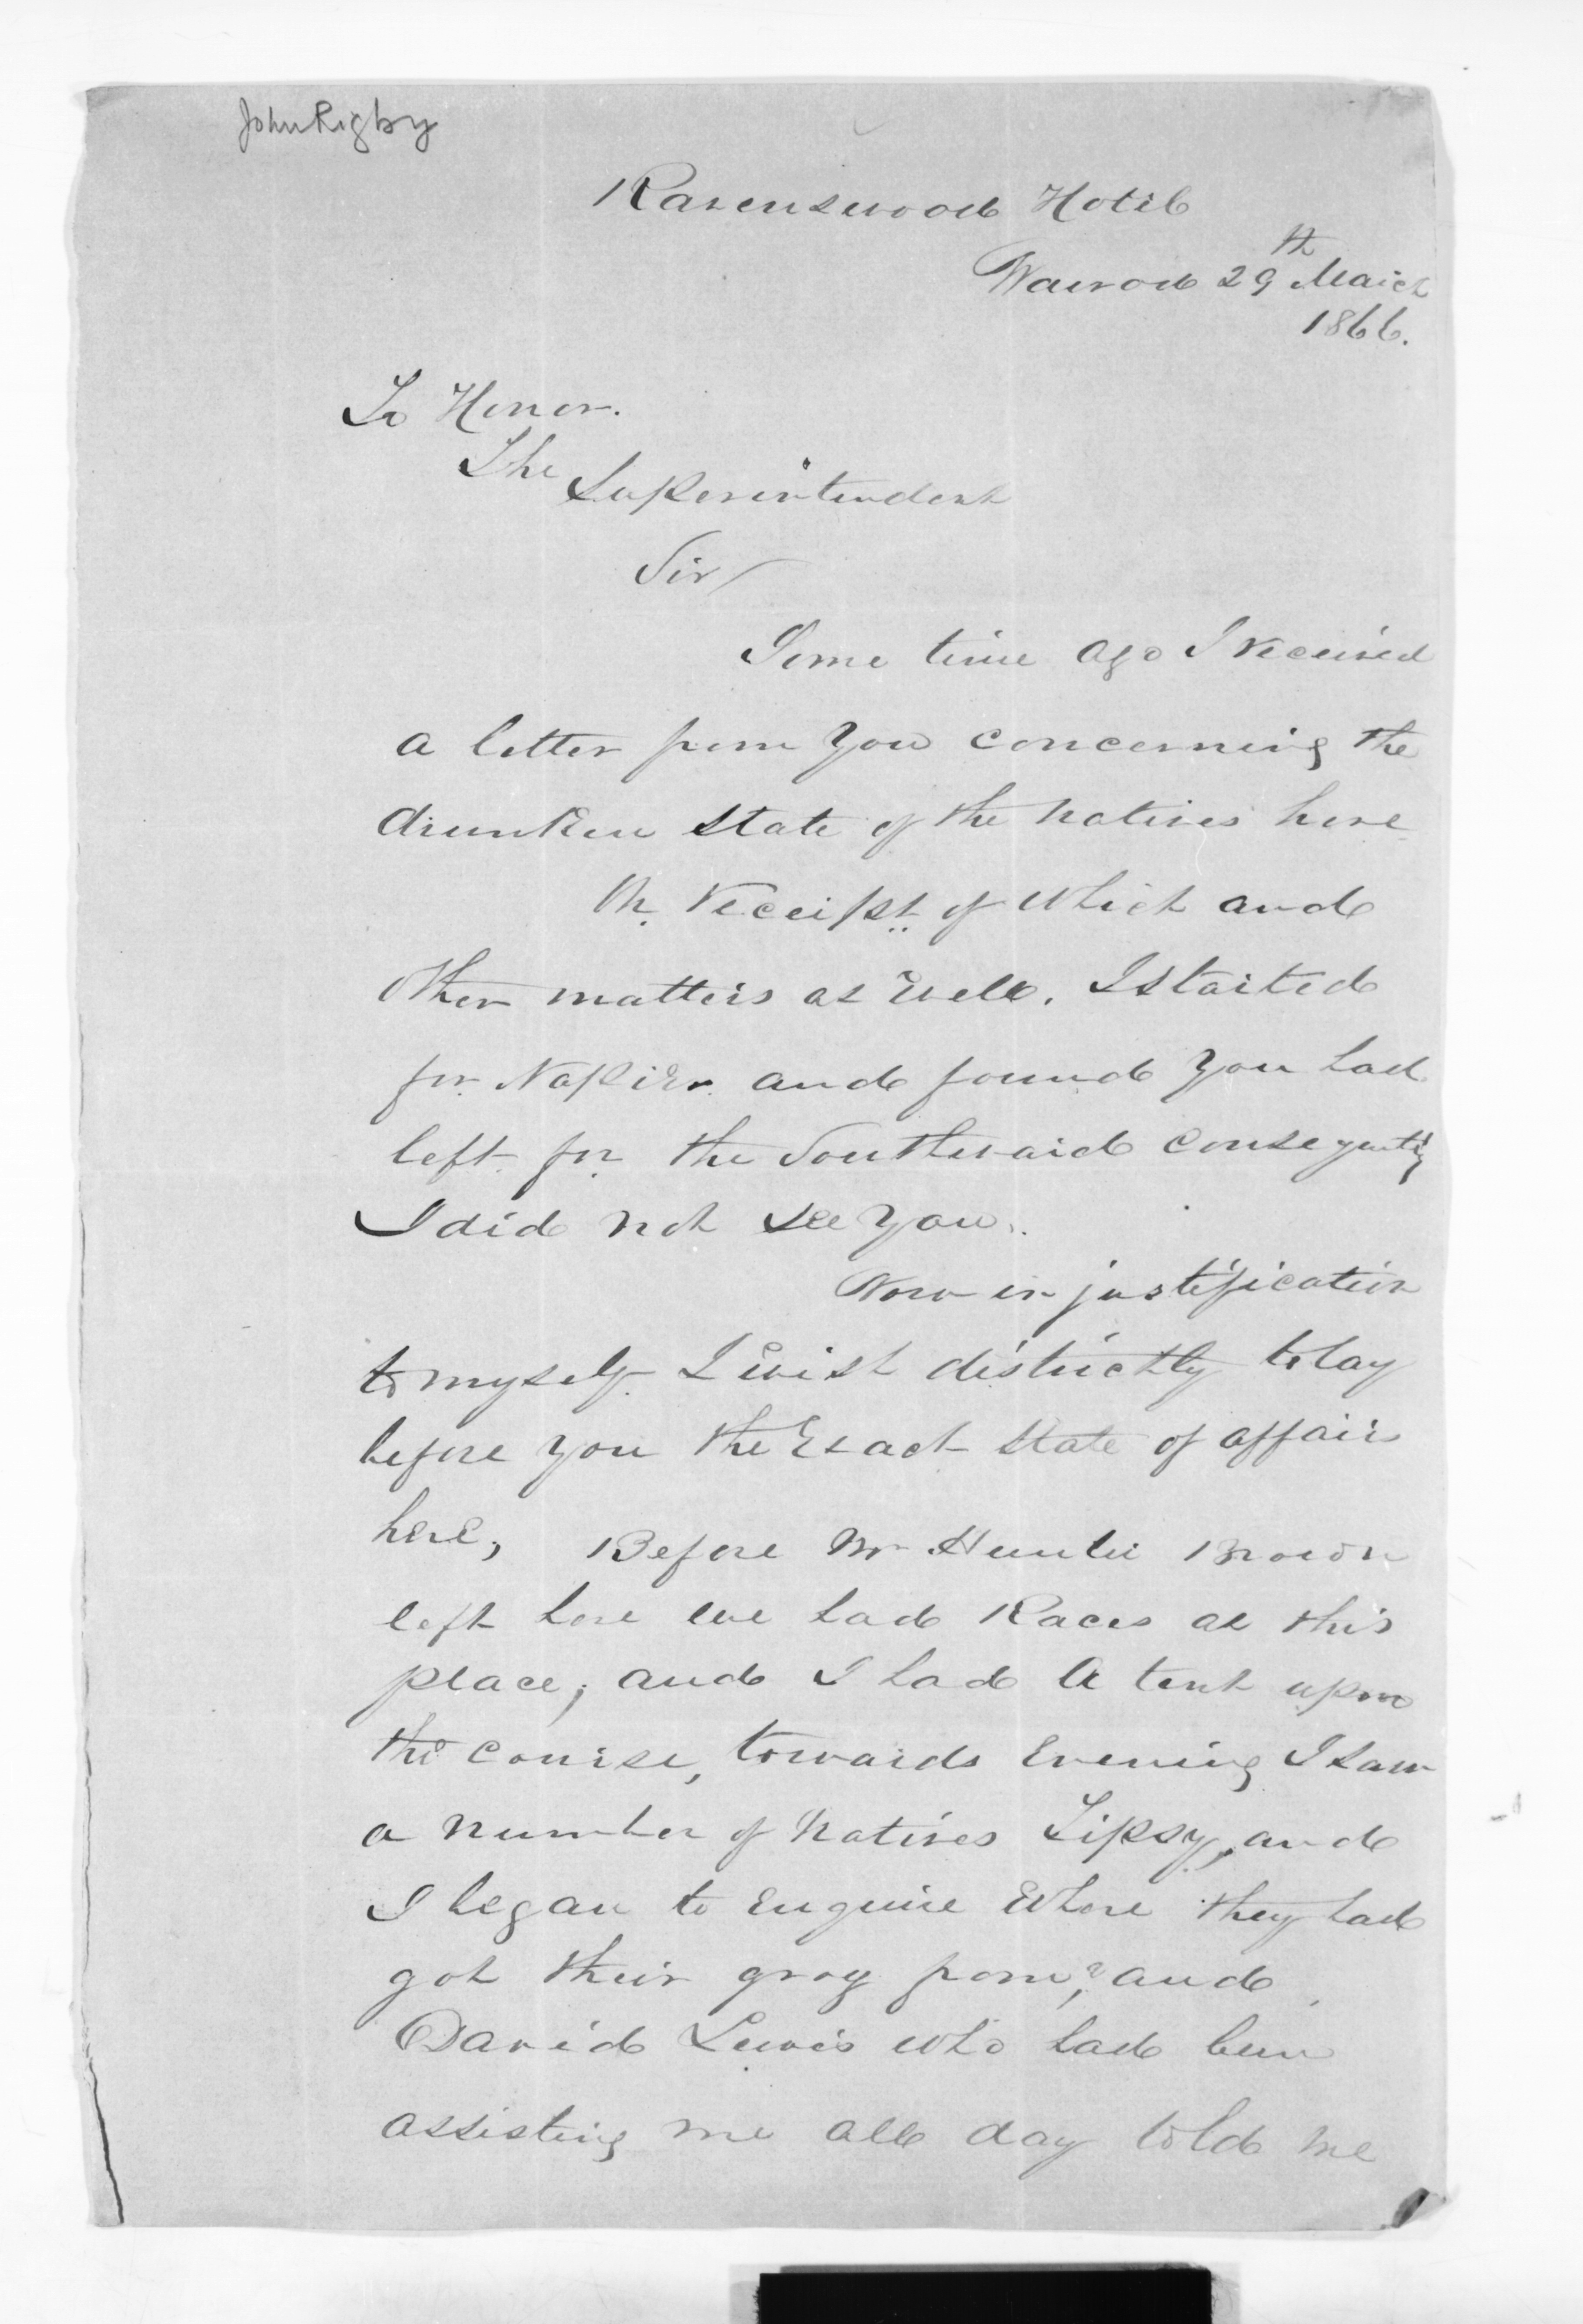 John Rigby
Ravenswood Hotel
Wairoa 29th March
1866.
To Honor.
The Superintendent
Sir/
Some time ago I received
a letter from you concerning the
drunken state of the natives here
On receipt of which and
other matters as well, I started
for Napier and found you had
left for the Southward consequently
I did not see you.
Now in justification
to myself I wish distinctly to lay
before you the Exact state of affairs
here, Before Mr Hunter Brown
left here we had Races at this
place, and I had a tent upon
the course, towards Evening I saw
a number of natives Tipsy, and
I began to enquire where they had
got their grog from, ? and
David Lewis who had been
assisting me all day told me